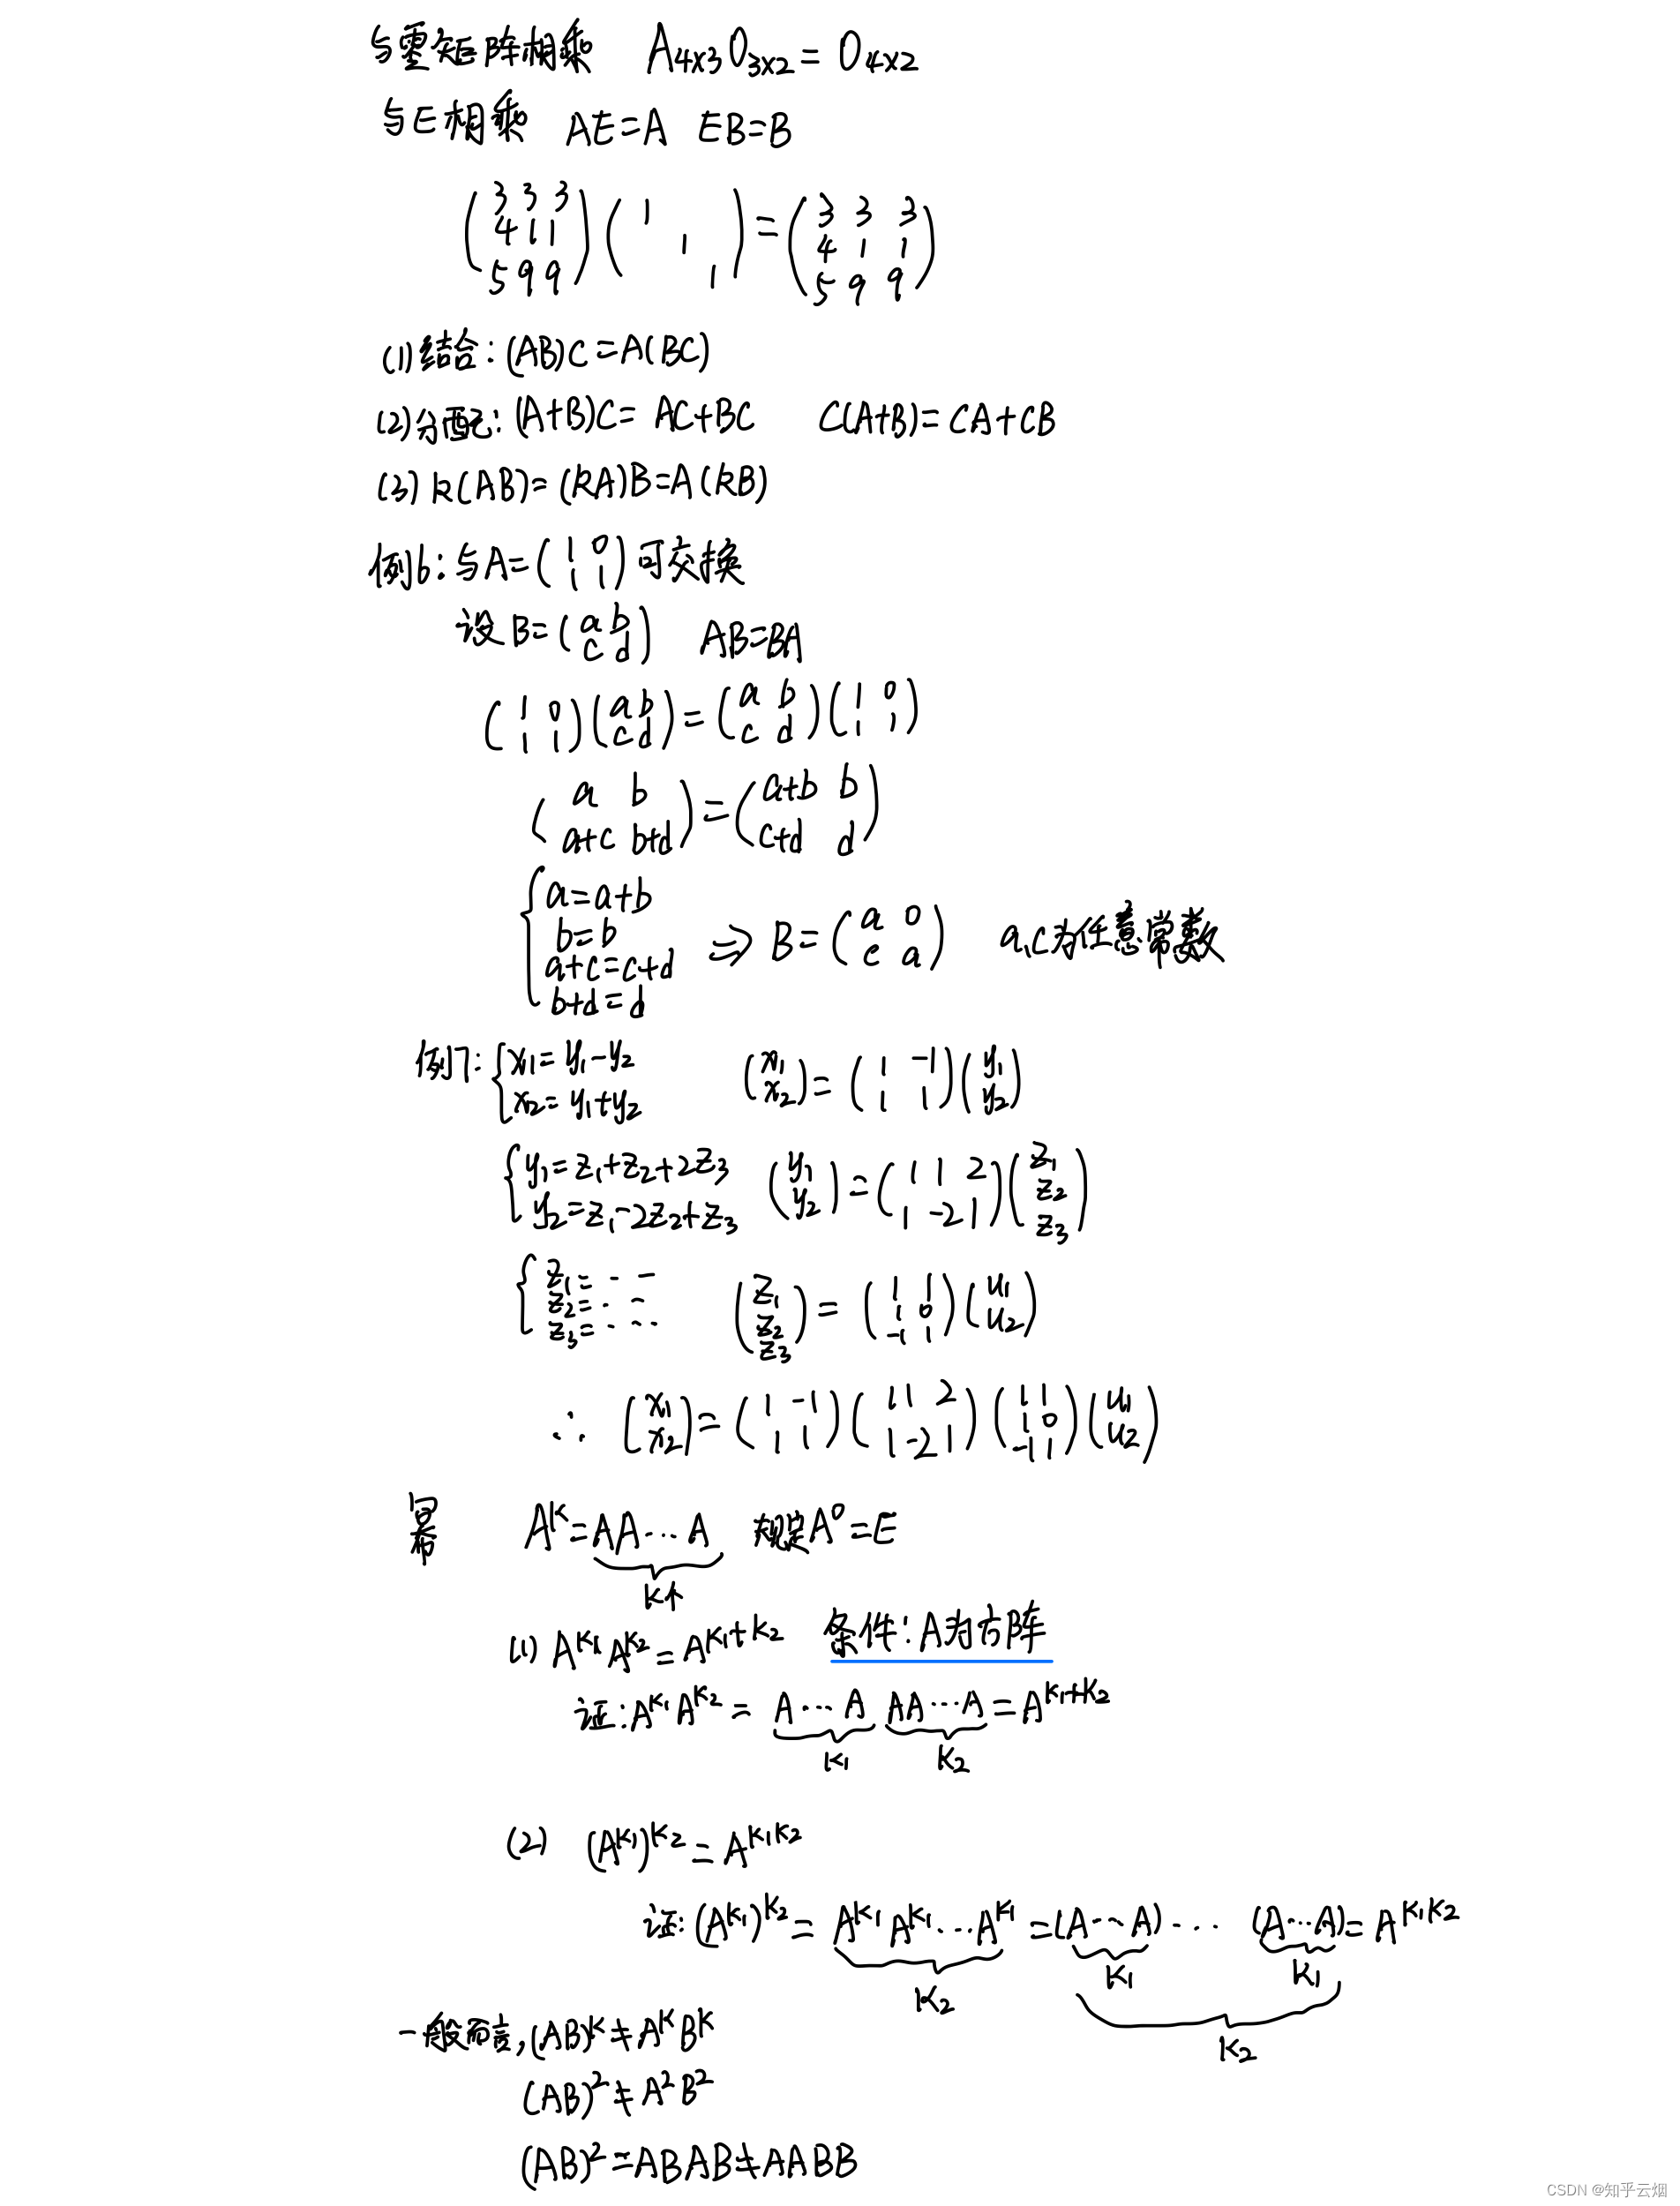 与零矩阵相乘 A₄ₓ₃O₃ₓ₂ = O₄ₓ₂
与E相乘 AE=A EB=B
(3 3 3; 4 1 1; 5 9 9)(1 ; 1 ; 1) = (3 3 3; 4 1 1; 5 9 9)
(1)结合:(AB)C=A(BC)
(2)分配:(A+B)C= AC+BC C(A+B)=CA+CB
(3) k(AB)=(kA)B=A(kB)
例6:与A=(1 0; 1 1)可交换
设B=(a b; c d) AB=BA
(1 0; 1 1)(a b; c d)=(a b; c d)(1 0; 1 1)
(a b; a+c b+d)=(a+b b; c+d d)
{a=a+b
b=b
a+c=c+d
b+d=d ⇒ B=(a 0; c a) a,c为任意常数
例7:{x₁=y₁-y₂
x₂=y₁+y₂ (x₁; x₂)=(1 -1; 1 1)(y₁; y₂)
{y₁=z₁+z₂+2z₃
y₂=z₁-2z₂+z₃ (y₁; y₂)=(1 1 2; 1 -2 1)(z₁; z₂; z₃)
{z₁=...
z₂=...
z₃=... (z₁; z₂; z₃)=(1 1; 1 0; -1 1)(u₁; u₂)
∴ (x₁; x₂)=(1 -1; 1 1)(1 1 2; 1 -2 1)(1 1; 1 0; -1 1)(u₁; u₂)
幂 A^K=AA…A 规定A⁰=E
K个
(1) A^K₁A^K₂=A^K₁+K₂ 条件:A为方阵
证:A^K₁A^K₂= A…A AA…A=A^K₁+K₂
K₁ K₂
(2) (A^K₁)^K₂=A^K₁K₂
证:(A^K₁)^K₂= A^K₁A^K₁…A^K₁=(A…A)… (A…A)=A^K₁K₂
K₁ K₁
K₂
K₂
一般而言,(AB)^K≠A^KB^K
(AB)²≠A²B²
(AB)²=ABAB≠AABB
CSDN @知乎云烟